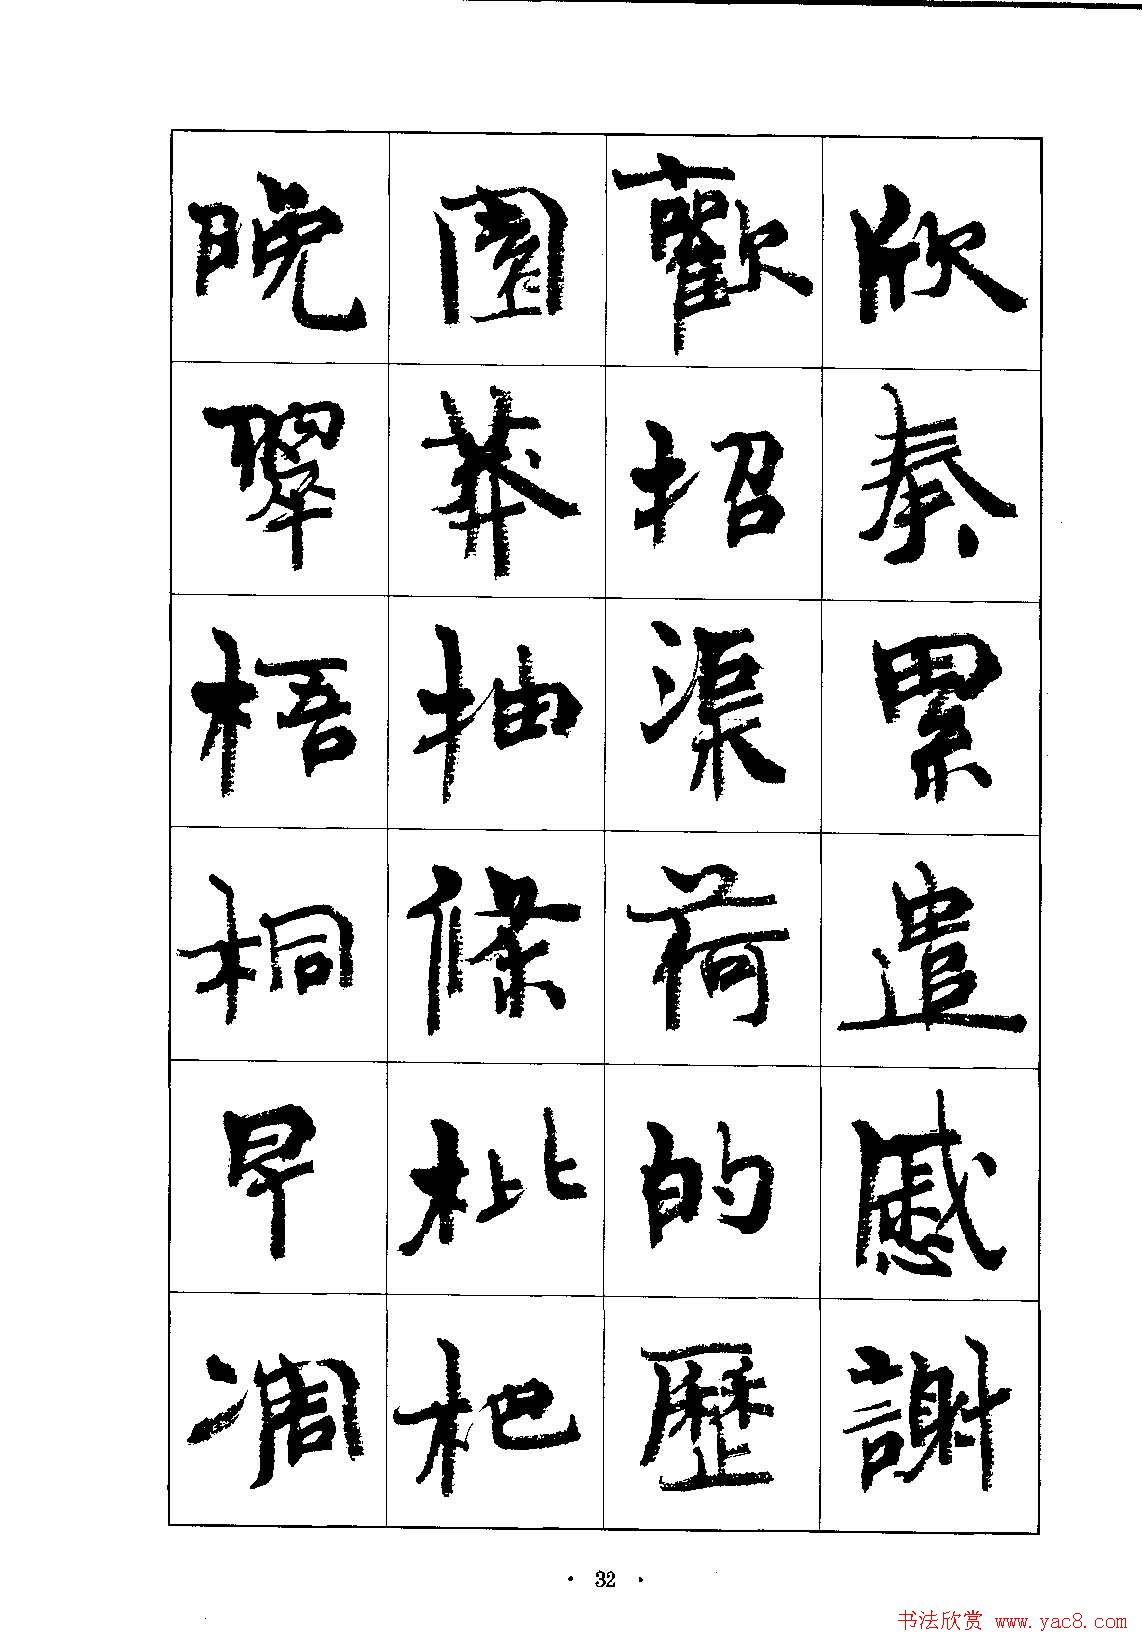 欣奏累遣慼謝
歡招渠荷的歷
園莽抽條枇杷
晚翠梧桐早凋
· 32 ·
书法欣赏 www.yac8.com